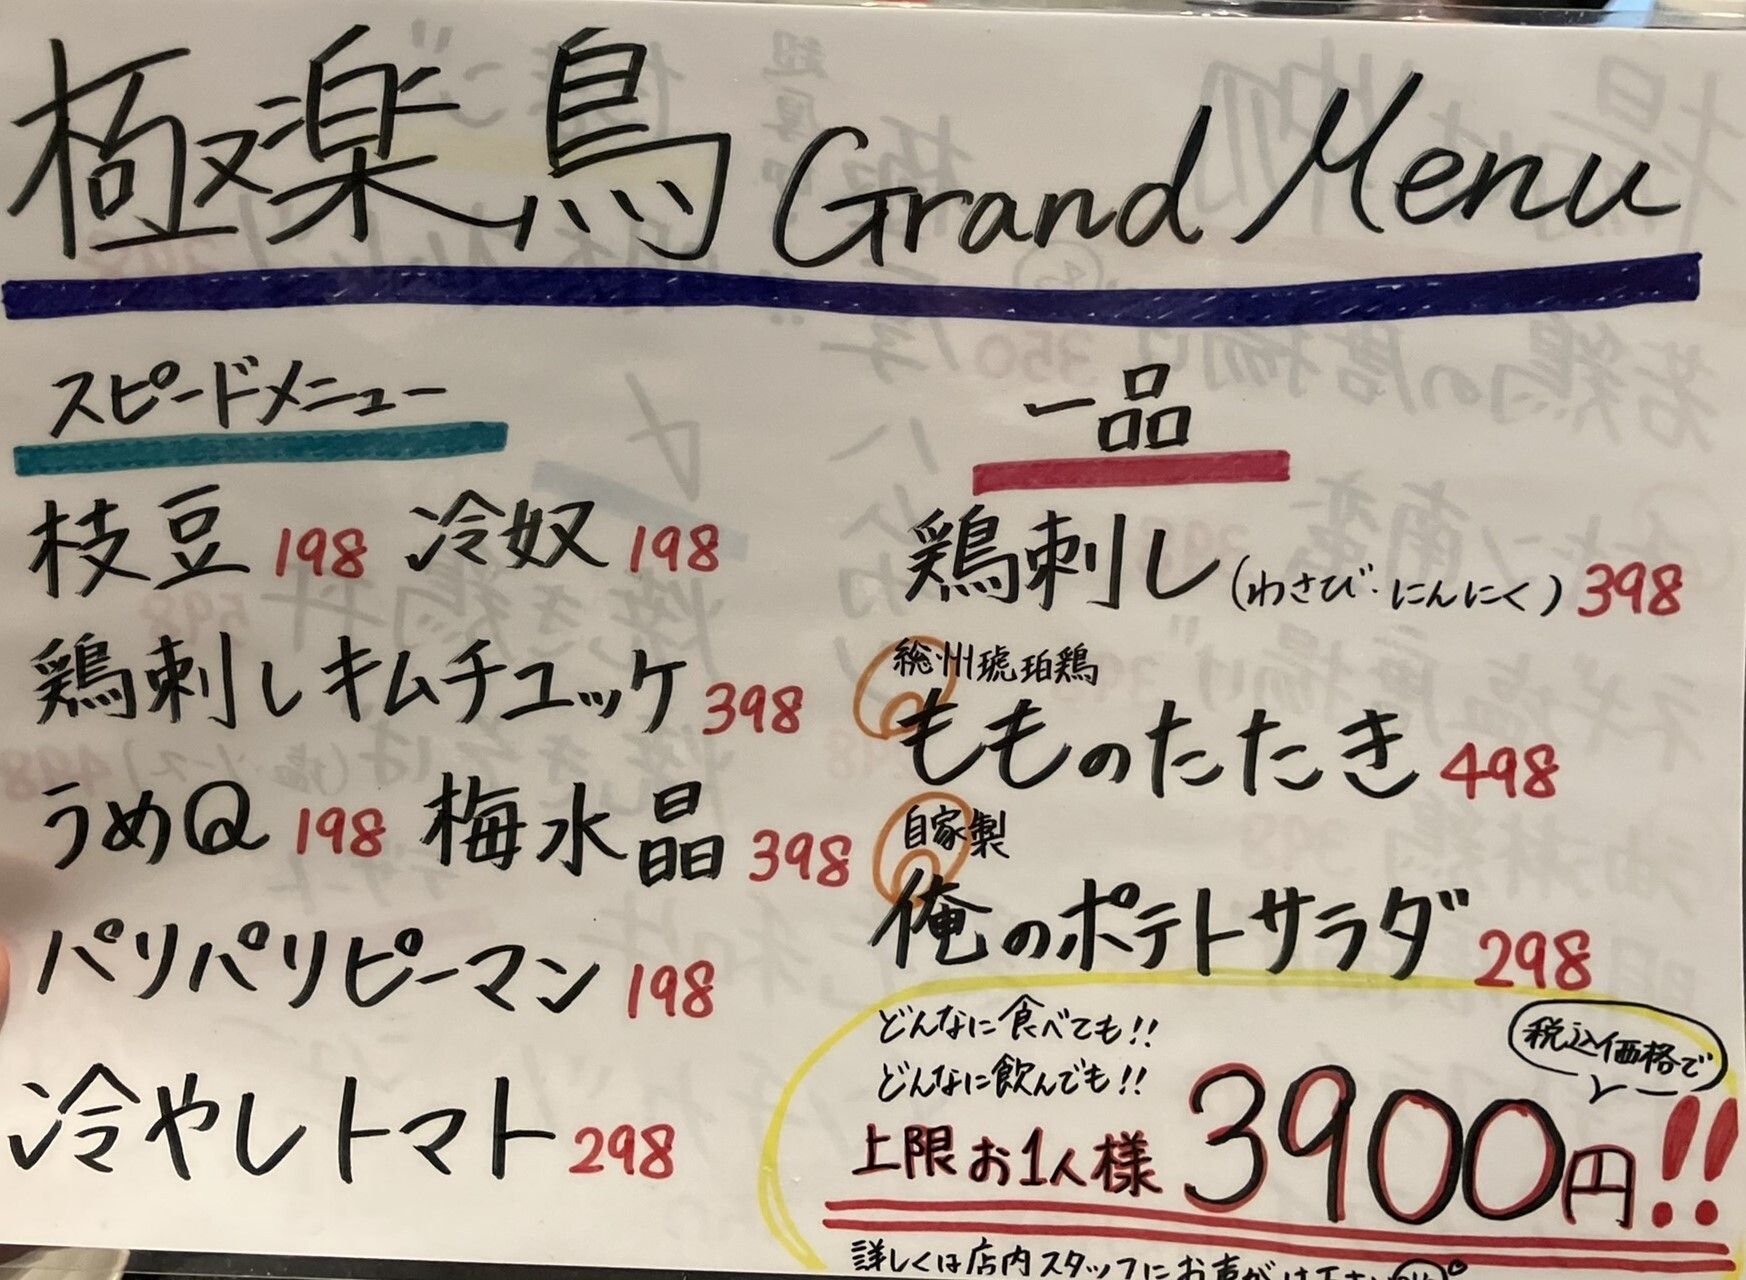 極楽鳥 Grand Menu
スピードメニュー
枝豆 198 冷奴 198
鶏刺しキムチユッケ 398
うめQ 198 梅水晶 398
パリパリピーマン 198
冷やしトマト 298
一品
鶏刺し(わさび・にんにく) 398
総州琥珀鶏
もものたたき 498
自家製
俺のポテトサラダ 298
どんなに食べても!!
どんなに飲んでも!!
税込価格で
上限お1人様 3900円!!
詳しくは店内スタッフにお声がけ下さい